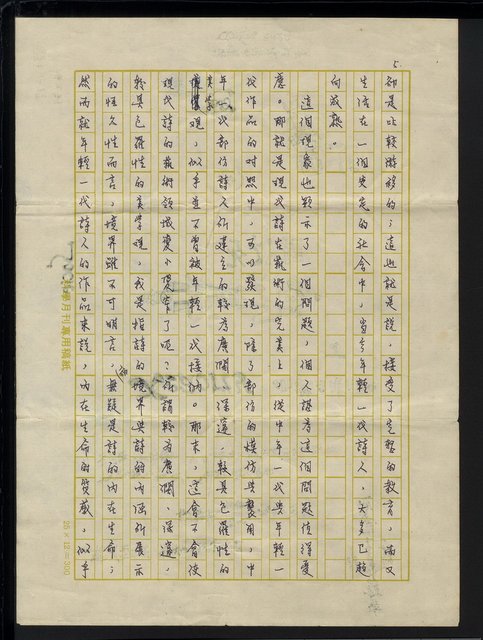 5.
卻是比較游移的，這也就是說，接受了完整的教育，而又
生活在一個安定的社會中，當今年輕一代詩人，大多已趨
向成熟。
這個現象也顯示了一個問題，個人認為這個問題值得憂
慮。那就是現代詩在藝術的完美上，從中年一代與年輕一
代作品的對照中，可以發現，除了部份的模仿與襲用，中
年一代部份詩人所建立的較為廣闊、深邃，較具包羅性的
美學觀，似乎並不曾被年輕一代接納。那末，這會不會使
現代詩的藝術領域變小變窄了呢？所謂較為廣闊、深邃，
較具包羅性的美學觀，我是指詩的境界與詩的內涵所展示
的恆久性而言，境界雖不可明言，無疑是詩的內在生命；
然而就年輕一代詩人的作品來說，內在生命的質感，似乎
學月刊專用稿紙
25×12=300